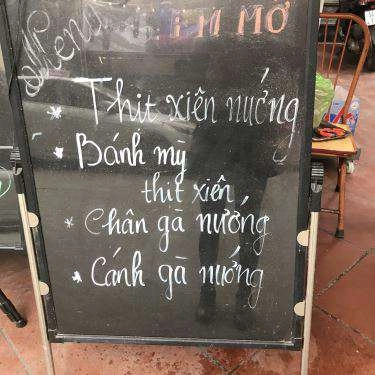 Menu
IM MƠ
* Thịt xiên nướng
* Bánh mỳ
thịt xiên
* Chân gà nướng
* Cánh gà nướng